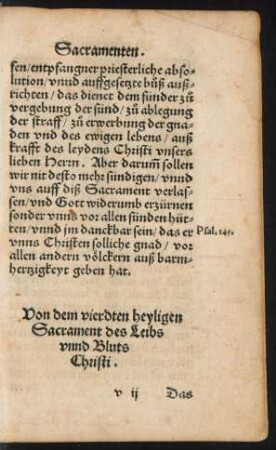 Sacramenten.
sen/entpfangner priesterliche abso-
lution/vnnd auffgesetzte bůß auß-
richten/das dienet dem sünder zů
vergebung der sünd/zů ablegung
der straff/zů erwerbung der gna-
den vnd des ewigen lebens/auß
krafft des leydens Christi vnsers
lieben Herrn. Aber darumb sollen
wir nit desto mehr sündigen/vnnd
vns auff diß Sacrament verlas-
sen/vnd Gott widerumb erzürnen
sonder vnns vor allen sünden hüt-
ten/vnnd jm danckbar sein/das er
vnns Christen solliche gnad/vor
allen andern völckern auß barm-
hertzigkeyt geben hat.
Psal. 145.
Von dem vierdten heyligen
Sacrament des Leibs
vnnd Bluts
Christi.
v ij Das